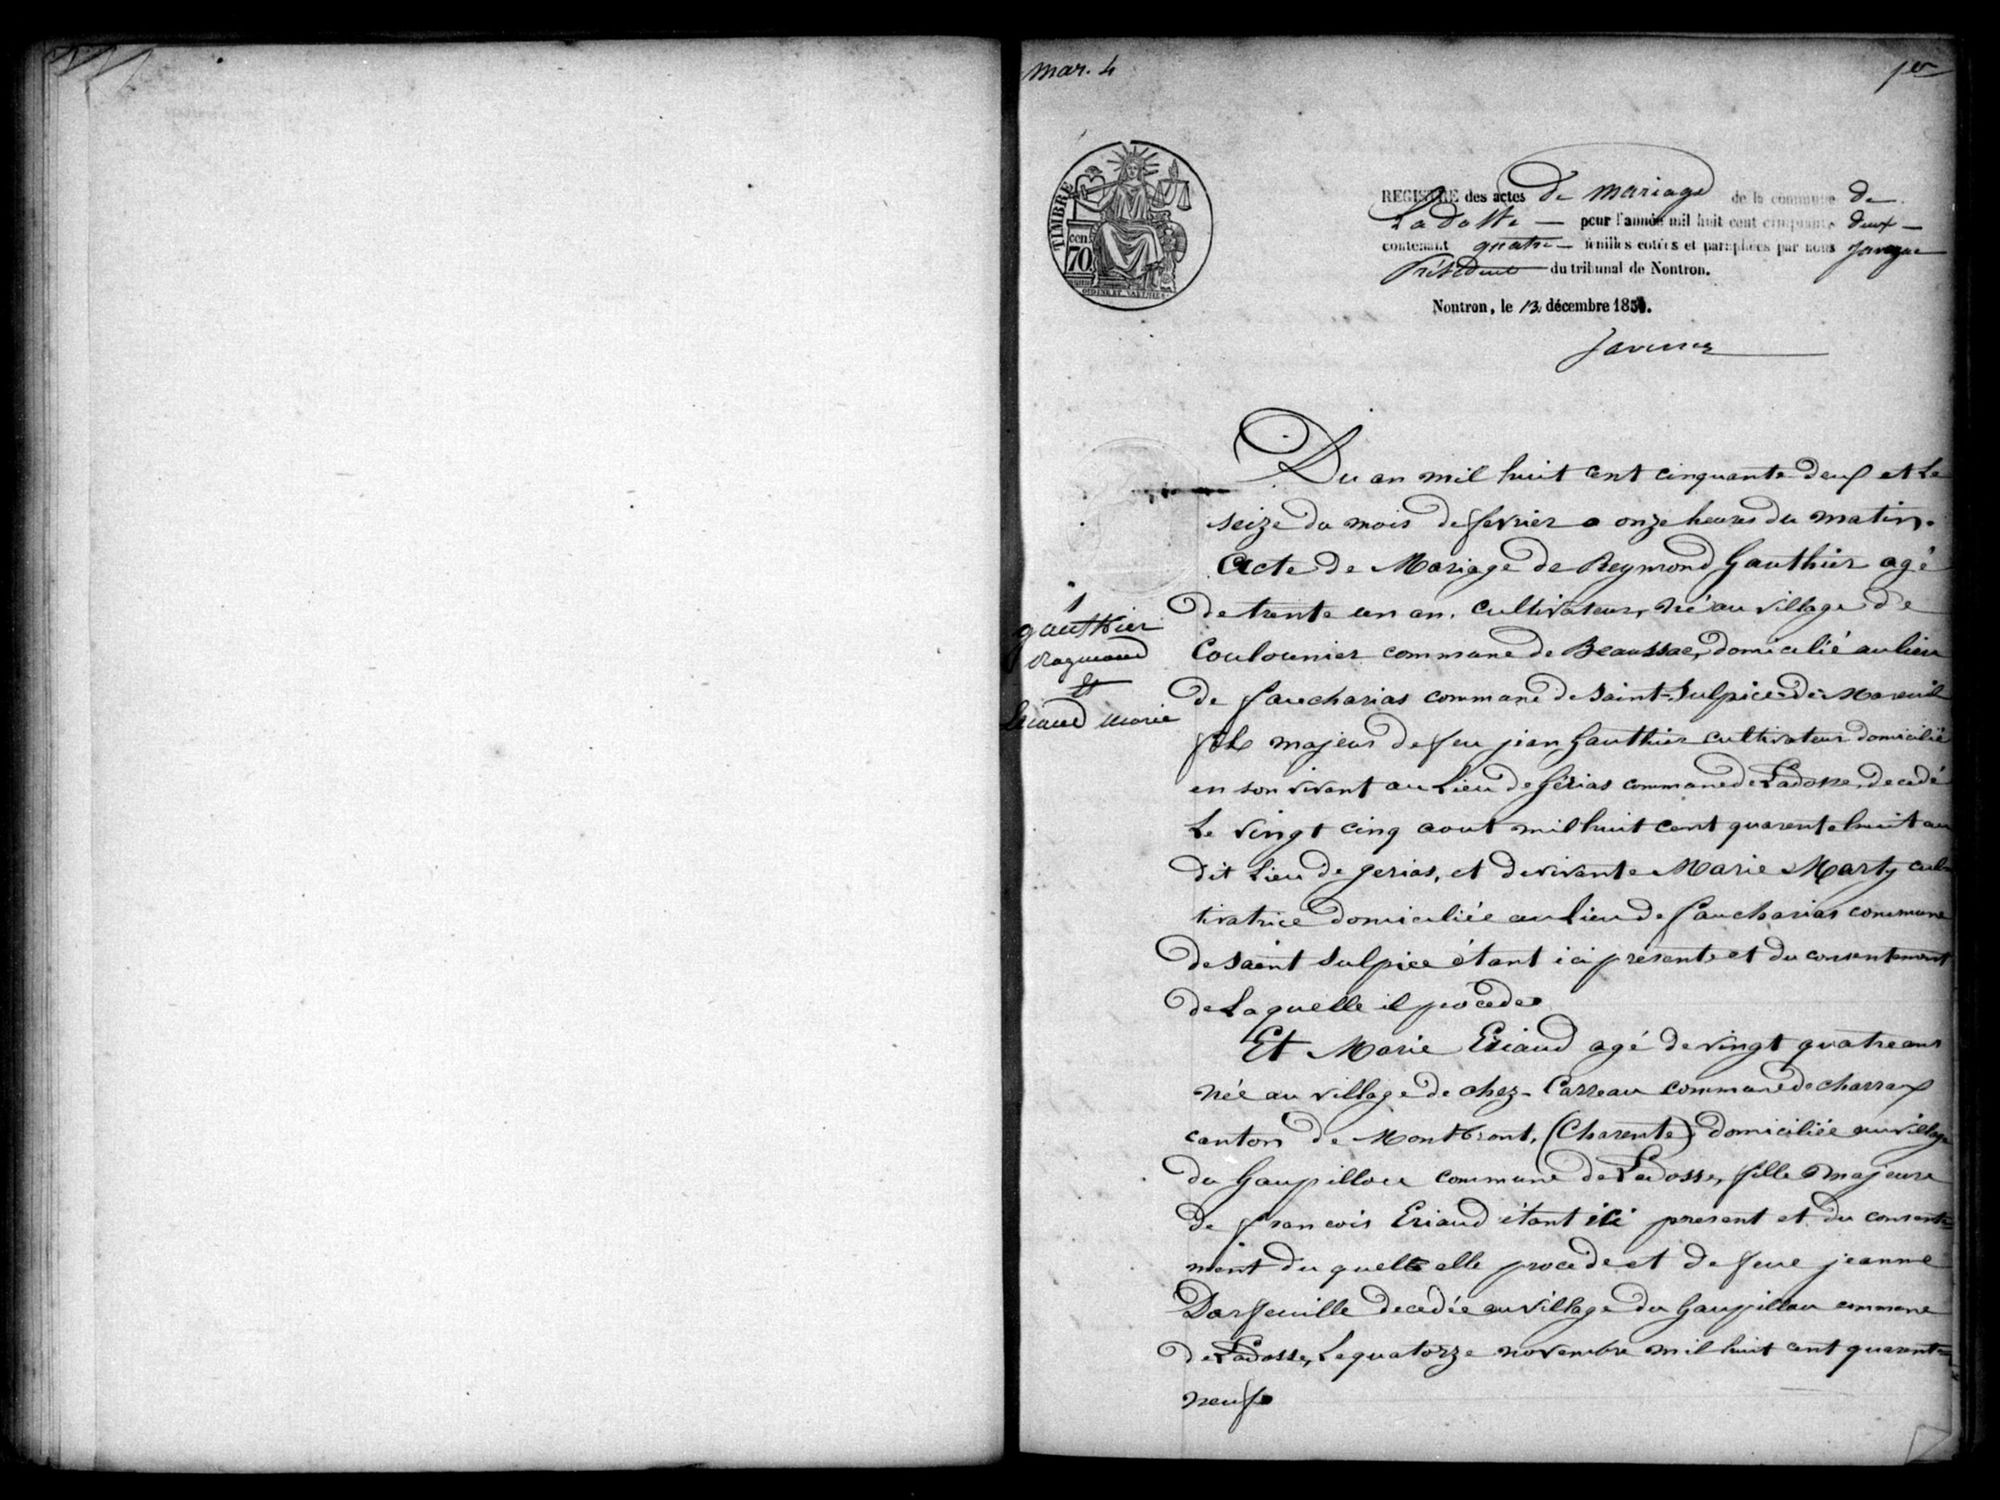 mar. 4
1er
TIMBRE
70 cen.
REGISTRE des actes de mariage de la commune de
Ladosse — pour l'année mil huit cent cinquante deux —
contenant quatre — feuilles cotées et paraphées par nous
Président — du tribunal de Nontron.
Nontron, le 13 décembre 1851.
Du an mil huit cent cinquante deux et le
seize du mois de fevrier a onze heures du matin.
Acte de Mariage de Reymond Gauthier agé
de trente un an, cultivateur, né au village de
Coulounier commune de Beaussac, domicilié au lieu
de faucharias commune de Saint-Sulpice de Mareuil
fils majeur de feu jean Gauthier cultivateur domicilié
en son vivant au Lieu de Gérias commune de Ladosse, decedé
Le vingt cinq aout mil huit cent quarente huit au
dit Lieu de gerias, et de vivante Marie Marty cul-
tivatrice domiciliée au Lieu de faucharias commune
de saint Sulpice étant ici présente et du consentement
de Laquelle il procede
1
gauthier
Raymond
et
Eriaud marie
Et Marie Eriaud agé de vingt quatre ans
née au village de chez-Carreau commune de charras
canton de Montbront, (Charente), domiciliée au village
du Gaupillou commune de Ladosse, fille majeure
de francois Eriaud étant ici present et du consente-
ment du quelle elle procede et de feue jeanne
Darfeuille decedée au village du Gaupillou commune
de Ladosse, Le quatorze novembre mil huit cent quarente
neuf